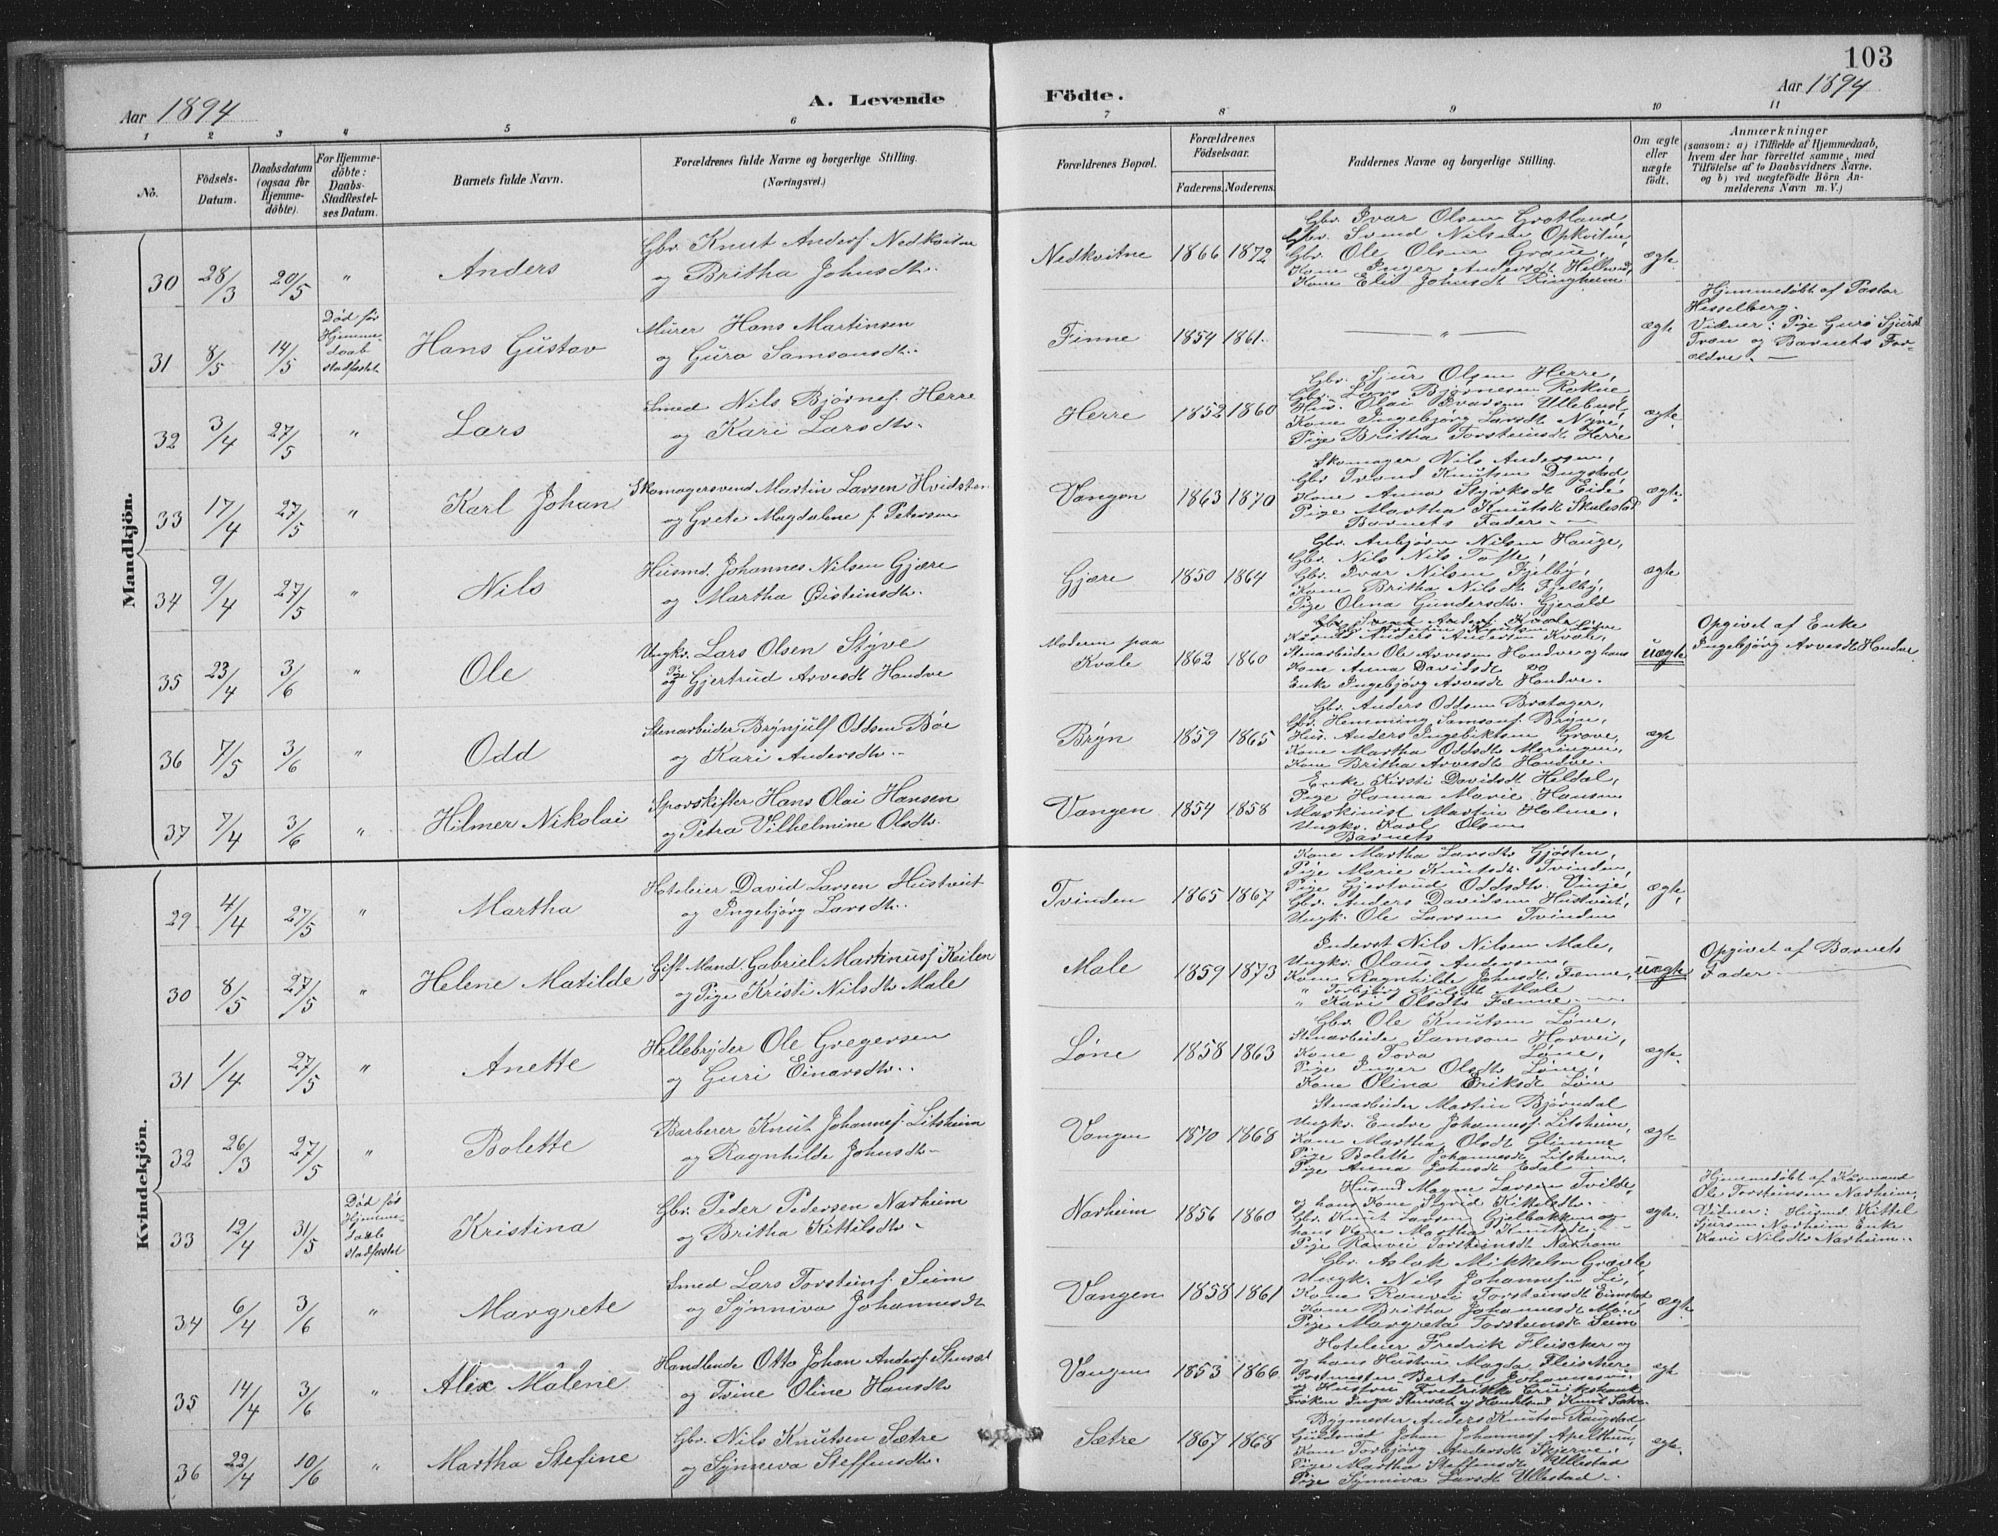 103
Aar 1894
A. Levende
Födte.
Aar 1894
1 2 3 4 5 6 7 8 9 10 11
No.
Födsels-
Datum.
Daabsdatum
(ogsaa for
Hjemme-
döbte)
For Hjemme-
döbte:
Daabs-
Stadfæstel-
ses Datum.
Barnets fulde Navn.
Forældrenes fulde Navne og borgerlige Stilling.
(Næringsvei.)
Forældrenes Bopæl.
Forældrenes
Födselsaar.
Faderens. Moderens.
Faddernes Navne og borgerlige Stilling.
Om ægte
eller
uægte
födt.
Anmærkninger
(saasom: a) i Tilfælde af Hjemmedaab,
hvem der har forrettet samme, med
Tilföielse af to Daabsvidners Navne,
og b) ved uægtefödte Börn An-
melderens Navn m. V.)
Mandkjön.
30 28/3 20/5 " Anders
Gbr. Knut Anders. Nedkvitne
og Britha Johnsdtr.
Nedkvitne 1866 1872
Gbr. Ivar Olsen Grotland,
Gbr. Svend Nilsen Opkvitne,
Gbr. Ole Olsen Graue,
Kone Inger Andersdt
Kone Eli Johnsdt Ringheim.
ægte
31 8/5 14/5
Död för
Hjemme-
daab
stadfæstet
Hans Gustav
Murer Hans Martinsen
og Guro Samsonsdtr.
Finne 1854 1861.
— " —
ægte
Hjemmedöbt af Pastor
Hesselberg.
Vidner: Pige Guro Sjursd
Træn og Barnets For-
ældre. —
32 3/4 27/5 " Lars
Smed Nils Bjørnes. Herre
og Kari Larsdtr.
Herre 1852 1860
Gbr. Sjur Olsen Herre,
Gbr. Lars Bjørnesen Rokne
Hus. Olai Ivarsen Ullebust,
Kone Ingebjørg Larsdt Nyre,
Pige Britha Torsteinsdt Herre
ægte.
33 17/4 27/5 " Karl Johan
Skomagersvend Martin Larsen Hvidsten
og Grete Magdalene f. Petersen
Vangen 1863 1870
Skomager Nils Andersen,
Gbr Trond Knutsen Dugstad,
Kone Anna Styrksdt Eide
Pige Martha Knutsdt Skulestad
Barnets Fader.
ægte.
34 9/4 27/5 " Nils
Husmd. Johannes Nilsen Gjære
og Martha Øisteinsdtr.
Gjære 1850 1864
Gbr. Anbjørn Nilsen Hauge,
Gbr. Nils Nils Tofte,
Gbr. Ivar Nilsen Fjelby,
Kone Britha Nilsdt Fjelby,
Pige Olina Gundersdtr. Gjerald
ægte
35 23/4 3/6 " Ole
Ungkr. Lars Olsen Styve
og Pige Gjertrud Arvesdt Hondve
Moderen paa
Kvale 1862 1860
Stenarbeider Ole Arvesen Hondve og hans
Kone Anna Davidsdt
Enke Ingebjørg Arvesdt Hondve.
uægte
Opgivet af Enke
Ingebjørg Arvesdt Hondve.
36 7/5 3/6 " Odd
Stenarbeider Brynjulf Oddsen Bøe
og Kari Andersdtr.
Bryn 1859 1865
Gbr. Anders Oddsen Bratager,
Gbr. Hemming Samsons. Bryn,
Hus. Anders Ingebriktsen Grove,
Kone Martha Oddsdt Moringen,
Kone Britha Arvesdt Hondve.
ægte
37 7/4 3/6 " Hilmer Nikolai
Sporskifter Hans Olai Hansen
og Petra Vilhelmine Olsdtr.
Vangen 1854 1858
Enke Kirsti Davidsdt Heldal,
Pige Hanna Marie Hansen
Maskinist Martin Holme,
Ungkr. Karl Olsen
Barnets
Kvindekjön.
29 4/4 27/5 " Martha
Hoteleier David Larsen Hustveit
og Ingebjørg Larsdtr.
Tvinden 1865 1867
Kone Martha Larsdtr Gjøsten,
Pige Marie Knutsdt Tvinden,
Pige Gjertrud Oddsdtr. Vinje,
Gbr. Anders Davidsen Hustveit,
Ungk. Ole Larsen Tvinden
ægte,
30 8/5 27/5 " Helene Matilde
Gift Mand Gabriel Martinus. Keilen
og Pige Kristi Nilsdtr Male
Male 1859 1873
Inderst Nils Nilsen Male,
Ungkr. Olaus Andersen,
Kone Ragnhilde Johnsdt Fenne,
" Torbjørg Nilsdt Male
" Kari Olsdtr Fenne.
uægte
Opgivet af Barnets
Fader.
31 1/4 27/5 " Anette
Hellebryder Ole Gregersen
og Guri Einarsdtr.
Løne 1858 1863
Gbr. Ole Knutsen Løne,
Stenarbeider Samson Horvei,
Kone Tora Løne,
Pige Inger Olsdt Løne,
Kone Olina Eriksdt Løne
ægte.
32 26/3 27/5 " Bolette
Barberer Knut Johannes. Litsheim
og Ragnhilde Johnsdtr.
Vangen 1870 1868
Stenarbeider Martin Bjørndal
Ungkr. Endre Johannes. Litsheim,
Kone Martha Olsdt Glimme
Pige Bolette Johannesdt Litsheim,
Pige Anna Johnsdt Edal
ægte
33 12/4 31/5
Död för
Hjemme-
daab
stadfæstet
Kristina
Gbr. Peder Pedersen Narheim
og Britha Kittilsdtr.
Narheim 1856 1860
Husmd Magne Larsen Tvilde,
og hans Kone Sigrid Kittelsdtr.
Gbr. Knut Larsen Gjelbakken og
hans Kone Martha Knutsdt.
Pige Ranvei Torsteinsdt Narheim
ægte.
Hjemmedöbt af Kaarmand
Ole Torsteinsen Narheim,
Vidner: Husmd Kittel
Sjursen Narheim Enke
Kari Nilsdtr Narheim.
34 6/4 3/6 " Margrete
Smed Lars Torsteins. Seim
og Synniva Johannesdt
Vangen 1858 1861
Gbr. Aslak Mikkelsen Gravle,
Ungk. Nils Johannesen Li,
Kone Ranvei Torsteinsdt
Kone Britha Johannesdt
Pige Margreta Torsteinsdt Seim
ægte.
35 14/4 3/6 " Alex Malene
Handlende Otto Johan Anders. Stusæt
og Trine Oline Hansdtr
Vangen 1853 1866
Hoteleier Fredrik Fleischer og
og hans Hustru Magda Fleischer
Postmester Bertel Johannesen
og Hustru Fredrikke
Frøken Inga Stusæt og Handlend. Knut Sætre.
ægte
36 22/4 10/6 " Martha Stefine
Gbr. Nils Knutsen Sætre
og Synneva Steffensdtr.
Sætre 1867 1868
Bygmester Anders Knutsen Raugstad
Guldsmed Johan Johannes. Apelthun,
Kone Torbjørg Andersdt Skjerve,
Pige Martha Steffensdt Ullestad
Pige Synniva Larsdt Ullestad.
ægte.